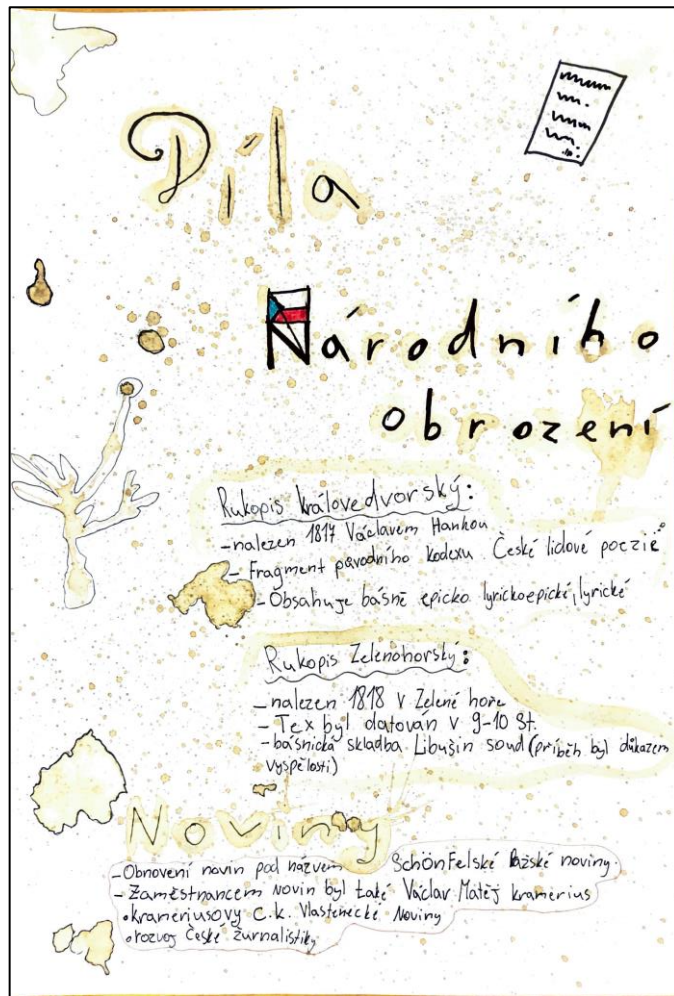 Díla
Národního
obrození
Rukopis Královedvorský:
-nalezen 1817 Václavem Hankou
-Fragment původního kodexu České lidové poezie
-Obsahuje básně epicko lyrickoepické, lyrické
Rukopis Zelenohorský:
-nalezen 1818 v Zelené hoře
-Tex byl datován v 9-10 St.
-básnická skladba Libušin soud (příběh byl důkazem
vyspělosti)
Noviny
-Obnovení novin pod názvem SchönFelské Pažské noviny.
-Zaměstnancem novin byl také Václav Matěj kramerius
•krameriusovy C.k. Vlastenecké Noviny
•rozvoj České žurnalistiky